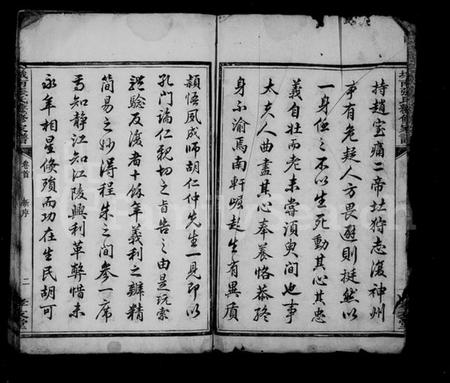 持趙寶痛二帝北狩志復神州
事有危疑人方畏避則挺然以
一身任之不以生死動其心其忠
義自壯而老未嘗須臾間也事
太夫人曲盡其心奉養恪恭終
身不渝焉南軒崛起生有異質
穎悟夙成師胡仁仲先生一見即以
孔門論仁親切之旨告之由是玩索
體驗反復者十餘年義利之辯精
簡易之妙得程朱之間參一席
焉知靜江知江陵興利革弊惜未
永年相星倏殞而功在生民胡可
卷首
二